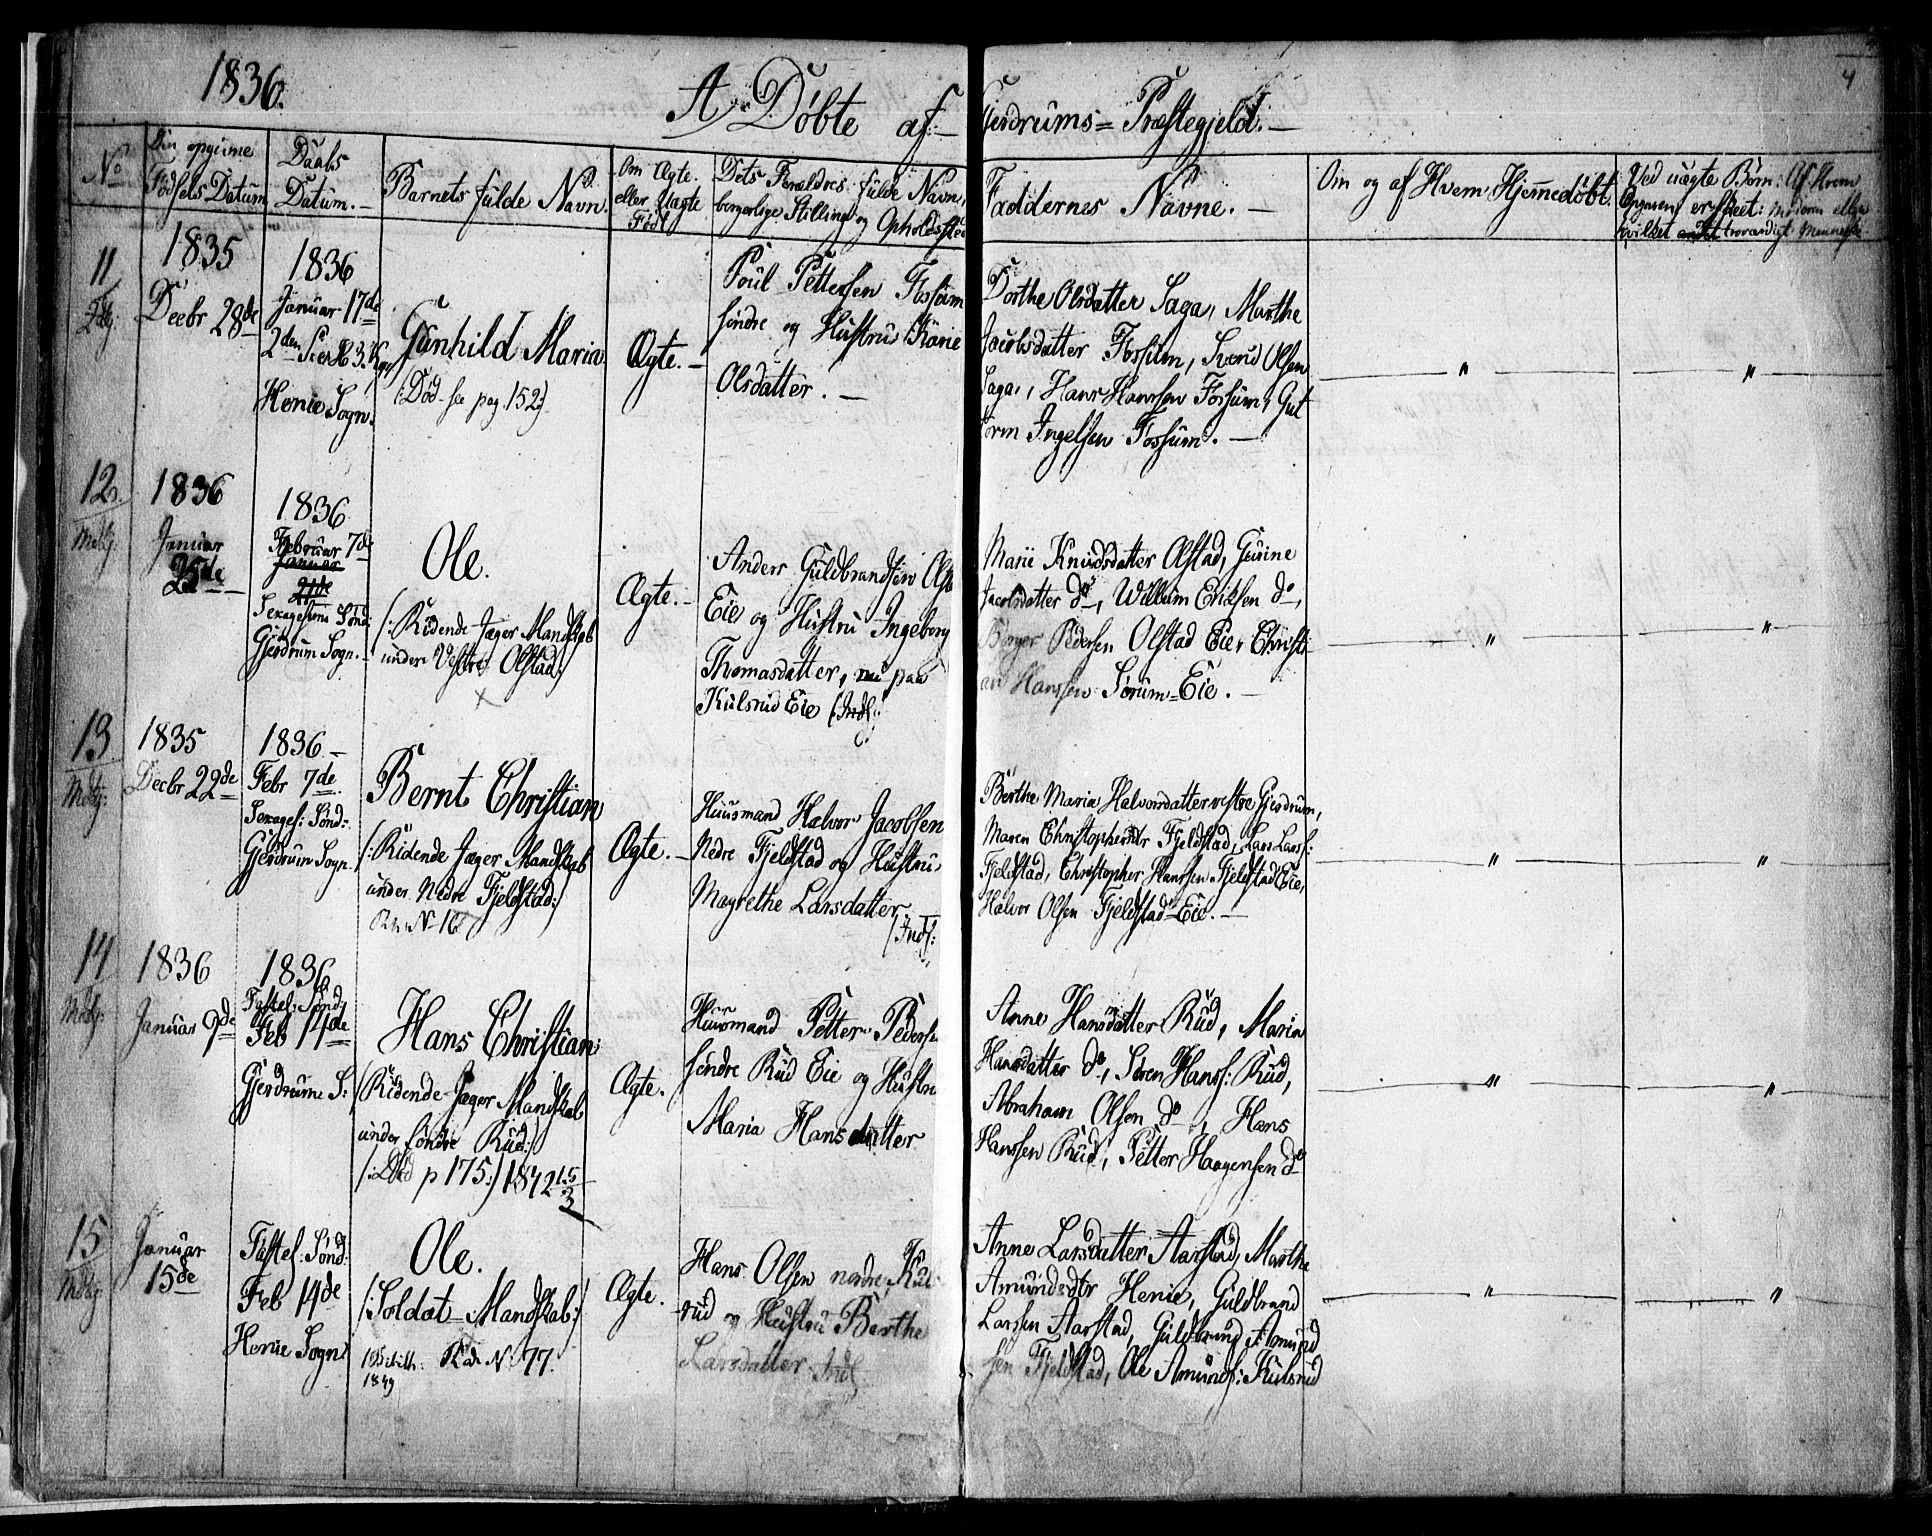 4
1836.
A, Døbte af Gjerdrums= Præstegjeld.
No
Den opgivne
Fødsels Datum
Daabs
Datum.
Barnets fulde Navn.
Om Ægte.
eller Uægte
Født
Dets Forældres fulde Navne,
borgerlige Stilling og Opholdssted
Faddernes Navne.
Om og af Hvem Hjemmedøbt.
Ved uægte Børn: Af Hvem
er skeet: Moderen eller
hvilket andet troværdigt Menneske
11
1835
Decbr 28de
1836
Januar 17de
2den
Henie Sogn.
Gunhild Maria
(:Død see pag. 152:)
Ægte.
Poul Pettersen Fossum
søndre og Hustru Karie
Olsdatter.
Dorthe Olsdatter Saga, Marthe
Jacobsdatter Fossum, Olsen
Saga, Hans Hanssen Fossum, Gut
torm Ingelsen Fossum.
"
"
12.
1836
Januar
25de
1836
Februar 7de
Januar
21de
Sexagesima Sønd:
Gjerdrum Sogn.
Ole.
(:Ridende Jæger Mandskab
under Vestre Olstad:)
Ægte.
Anders Guldbrandsen Olst
Eie og Hustru Ingeborg
Thomasdatter, nu paa
Kulsrud Eie (Indf:
Marie Knudsdatter Olstad, Gurine
Jacobsdatter do, Willum Eriksen do,
Borger Pedersen Olstad Eie, Christi
an Hanssen Sørum=Eie.
"
"
13
1835
Decbr 22de
1836
Febr 7de
Sexages: Sønd:
Gjerdrum Sogn.
Bernt Christian
(:Ridende Jæger Mandskab
under Nedre Fjeldstad:)
No 16
Ægte.
Huusmand Halvor Jacobsen
Nedre Fjeldstad og Hustru
Magrethe Larsdatter.
(Indf:
Berthe Maria Halvorsdatter vestre Gjerdrum,
Maren Christophersdtr Fjeldstad, Lars Larss:
Fjeldstad, Christopher Hanssen Fjeldstad Eie,
Halvor Olsen Fjeldstad=Eie.
"
"
14
1836
Januar 9de
1836
Fastel: Sønd:
Feb 14de
Gjerdrum S:
Hans Christian
(:Ridende Jæger Mandskab
under søndre Rud:)
(:Død p 175:) 1842 15/3
Ægte.
Huusmand Petter Pederse
søndre Rud Eie og Hustru
Maria Hansdatter
Anne Hansdatter Rud, Maria
Hansdatter do, Søren Hanss: Rud,
Abraham Olsen do, Hans
Hanssen Rud, Petter Haagensen do
"
"
15
Januar
15de
Fastel: Sønd:
Feb 14de
Henie Sogn
Ole.
(:Soldat Mandskab:)
No 77.
1849
Ægte.
Hans Olsen nordre Kuls
rud og Hustru Berthe
Larsdatter Indf.
Anne Larsdatter Aarstad, Marthe
Amundsdtr Henie, Guldbrand
Larssen Aarstad, Guldbrand Amund
sen Fjeldstad, Ole Amunds: Kulsrud
"
"